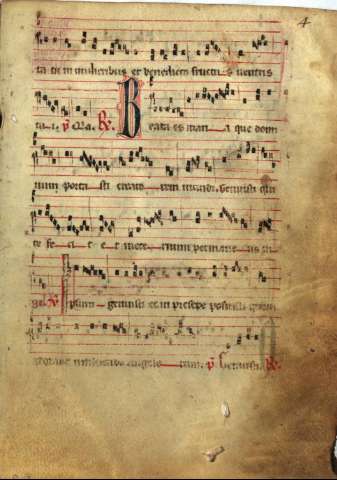 4
ta tu in mulieribus et benedictus fructus uentris
tui. ℣ Ma. ℟. Beata es mari a que domi
num porta sti creato rem mundi. Genuisti qui
te fe ci t et in eter num permane
℣ Ipsum genuisti et in presepe posuisti quem
adorat multitudo angelo rum. ℣ Genuisti. ℟.